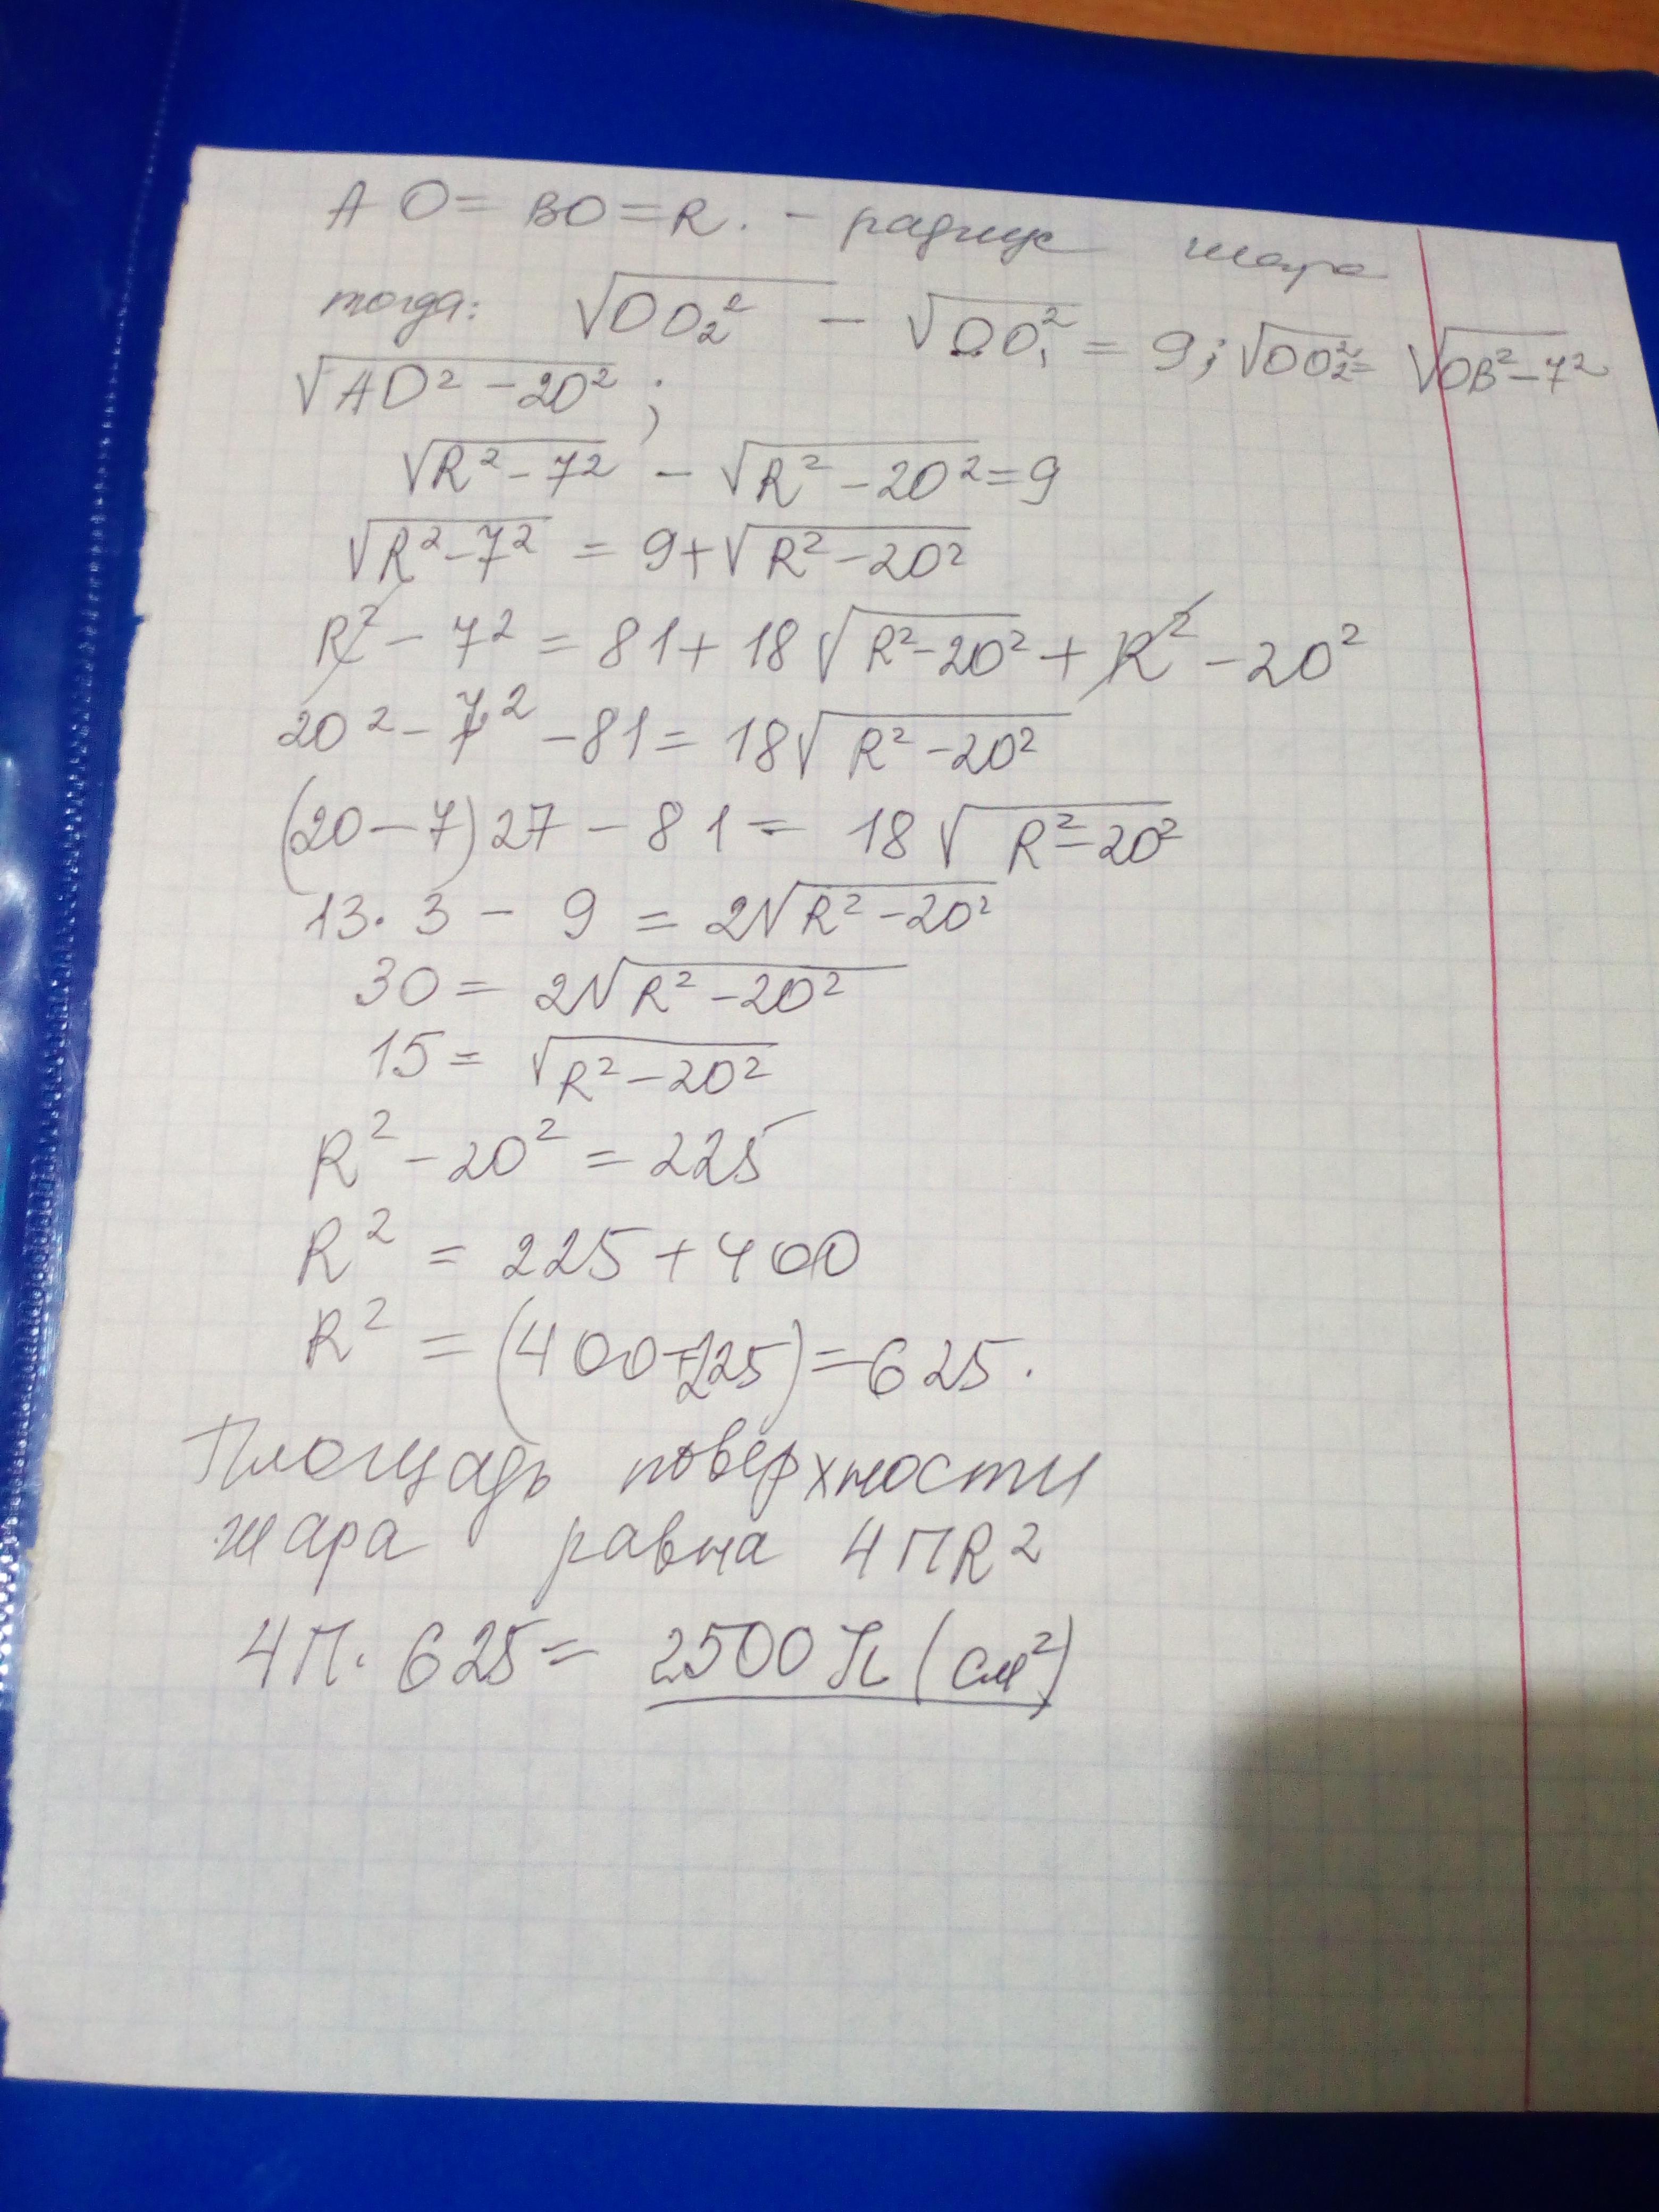 AO = BO = R. - радиус шара
тогда: √OO₂² - √OO₁² = 9; √OO₂² = √OB² - 7²
√AO² - 20² ;
√R² - 7² - √R² - 20² = 9
√R² - 7² = 9 + √R² - 20²
R² - 7² = 81 + 18√R² - 20² + R² - 20²
20² - 7² - 81 = 18√R² - 20²
(20 - 7) 27 - 81 = 18√R² - 20²
13 · 3 - 9 = 2√R² - 20²
30 = 2√R² - 20²
15 = √R² - 20²
R² - 20² = 225
R² = 225 + 400
R² = (400 + 225) = 625.
Площадь поверхности
шара равна 4ПR²
4П · 625 = 2500 π (см²)